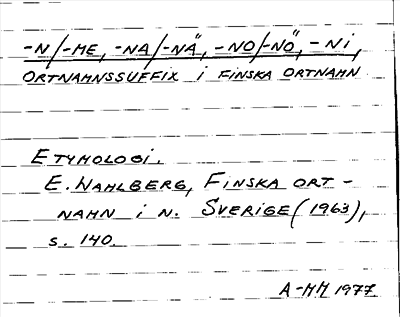 -N/-ME, -NA/-NÄ, -NO/-NÖ, -NI,
ORTNAMNSSUFFIX I FINSKA ORTNAMN
ETYMOLOGI.
E. WAHLBERG, FINSKA ORT-
NAMN I N. SVERIGE (1963),
S. 140.
A-MH 1977